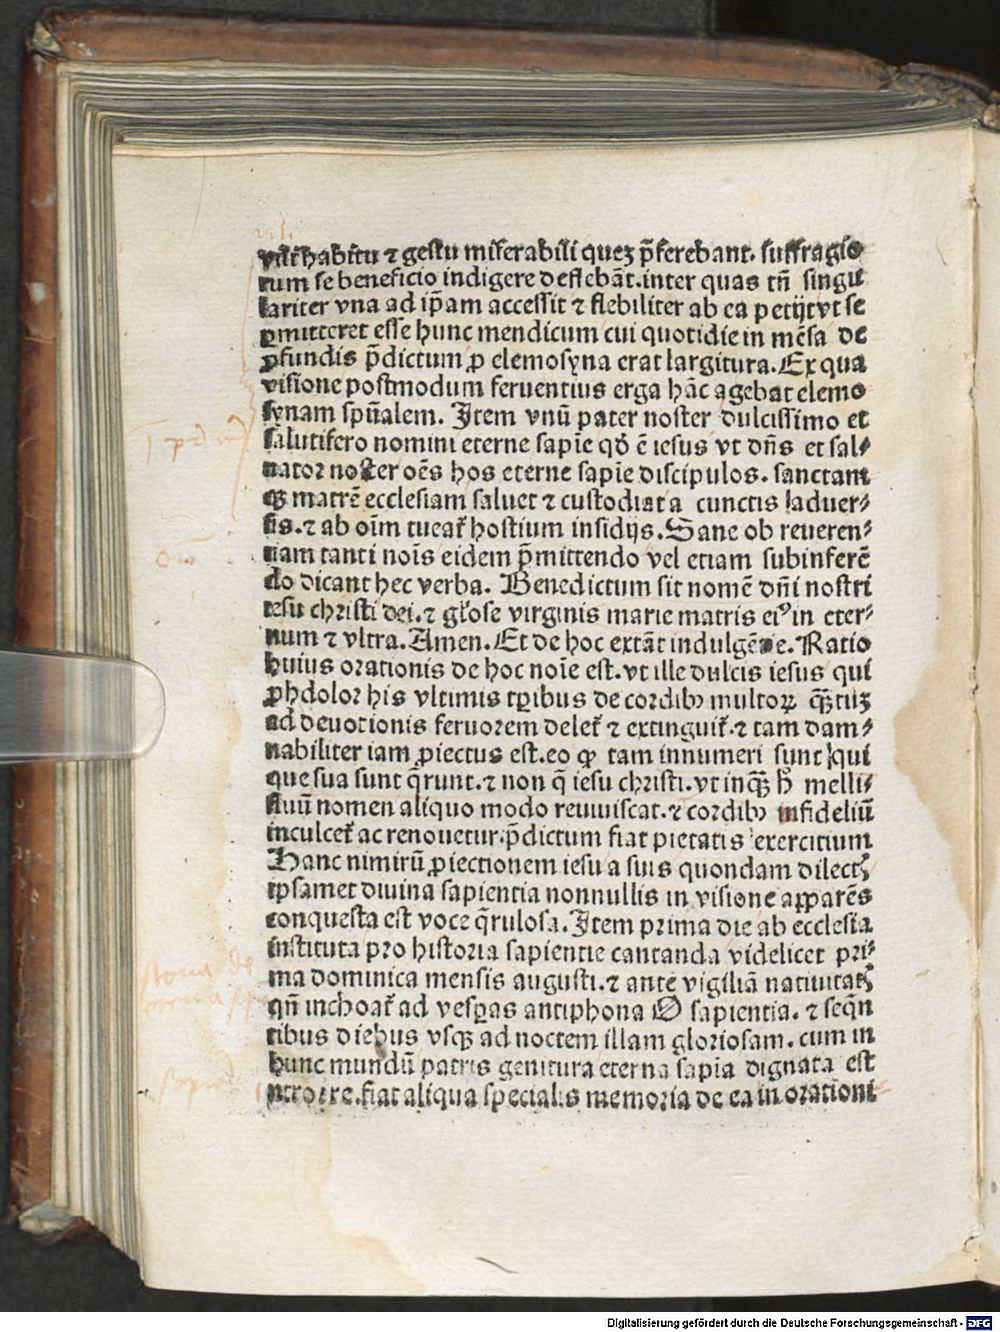 vili habitu ⁊ gestu miserabili queꝫ p̄ferebant. suffragio
rum se beneficio indigere deflebāt. inter quas tn̄ singu
lariter vna ad ip̄am accessit ⁊ flebiliter ab ea petijt vt se
ꝑmitteret esse hunc mendicum cui quotidie in mēsa de
ꝓfundis p̄dictum ꝓ elemosyna erat largitura. Ex qua
visione postmodum feruentius erga hāc agebat elemo
synam spūalem. Item vnū pater noster dulcissimo et
salutifero nomini eterne sapīe qd̄ ē iesus vt dn̄s et sal⸗
uator noster oēs hos eterne sapīe discipulos. sanctam
qꝫ matrē ecclesiam saluet ⁊ custodiat a cunctis aduer⸗
sis. ⁊ ab oīm tueat̄ hostium insidijs. Sane ob reueren⸗
tiam tanti nois̄ eidem p̄mittendo vel etiam subinferē
do dicant hec verba. Benedictum sit nomē dn̄i nostri
iesu christi dei. ⁊ glo͞se virginis marie matris eiꝰ in eter⸗
num ⁊ vltra. Amen. Et de hoc extāt indulgētie. Ratio
huius orationis de hoc noīe est. vt ille dulcis iesus qui
ꝓh dolor his vltimis tꝑibus de cordibꝫ multoꝝ q̄ꝫtuꝫ
ad deuotionis feruorem delet̄ ⁊ extinguit̄. ⁊ tam dam⸗
nabiliter iam ꝓiectus est. eo ꝙ tam innumeri sunt qui
que sua sunt q̄runt. ⁊ non q̄ iesu christi. vt inq̄ꝫ h̄ melli⸗
fluū nomen aliquo modo reuiuiscat. ⁊ cordibꝫ infideliū
inculcet̄ ac renouetur. p̄dictum fiat pietatis exercitium
Hanc nimirū ꝓiectionem iesu a suis quondam dilect̄
ipsamet diuina sapientia nonnullis in visione apparēs
conquesta est voce q̄rulosa. Item prima die ab ecclesia
instituta pro historia sapientie cantanda videlicet pri⸗
ma dominica mensis augusti. ⁊ ante vigiliā natiuitat̄
qn̄ inchoat̄ ad vesꝑas antiphona O sapientia. ⁊ seqn̄
tibus diebus vsqꝫ ad noctem illam gloriosam. cum in
hunc mundū patris genitura eterna sapīa dignata est
introire. fiat aliqua specialis memoria de ea in orationi
Digitalisierung gefördert durch die Deutsche Forschungsgemeinschaft - DFG